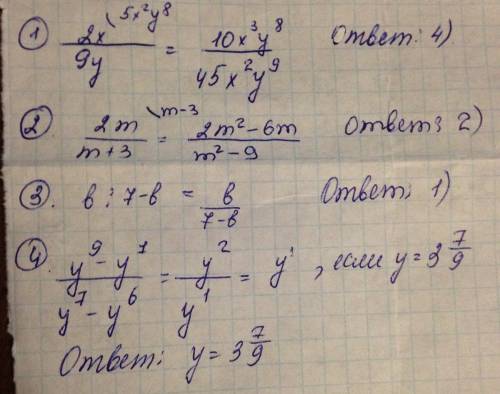 ① 2x\5x²y⁸ / 9y = 10x³y⁸ / 45x²y⁹ Ответ: 4)
② 2m\m-3 / m+3 = 2m²-6m / m²-9 Ответ: 2)
③. в : 7-в = в / 7-в Ответ: 1)
④. y⁹-y⁷ / y⁷-y⁶ = y² / y¹ = y¹, если y = 3 7/9
Ответ: y = 3 7/9